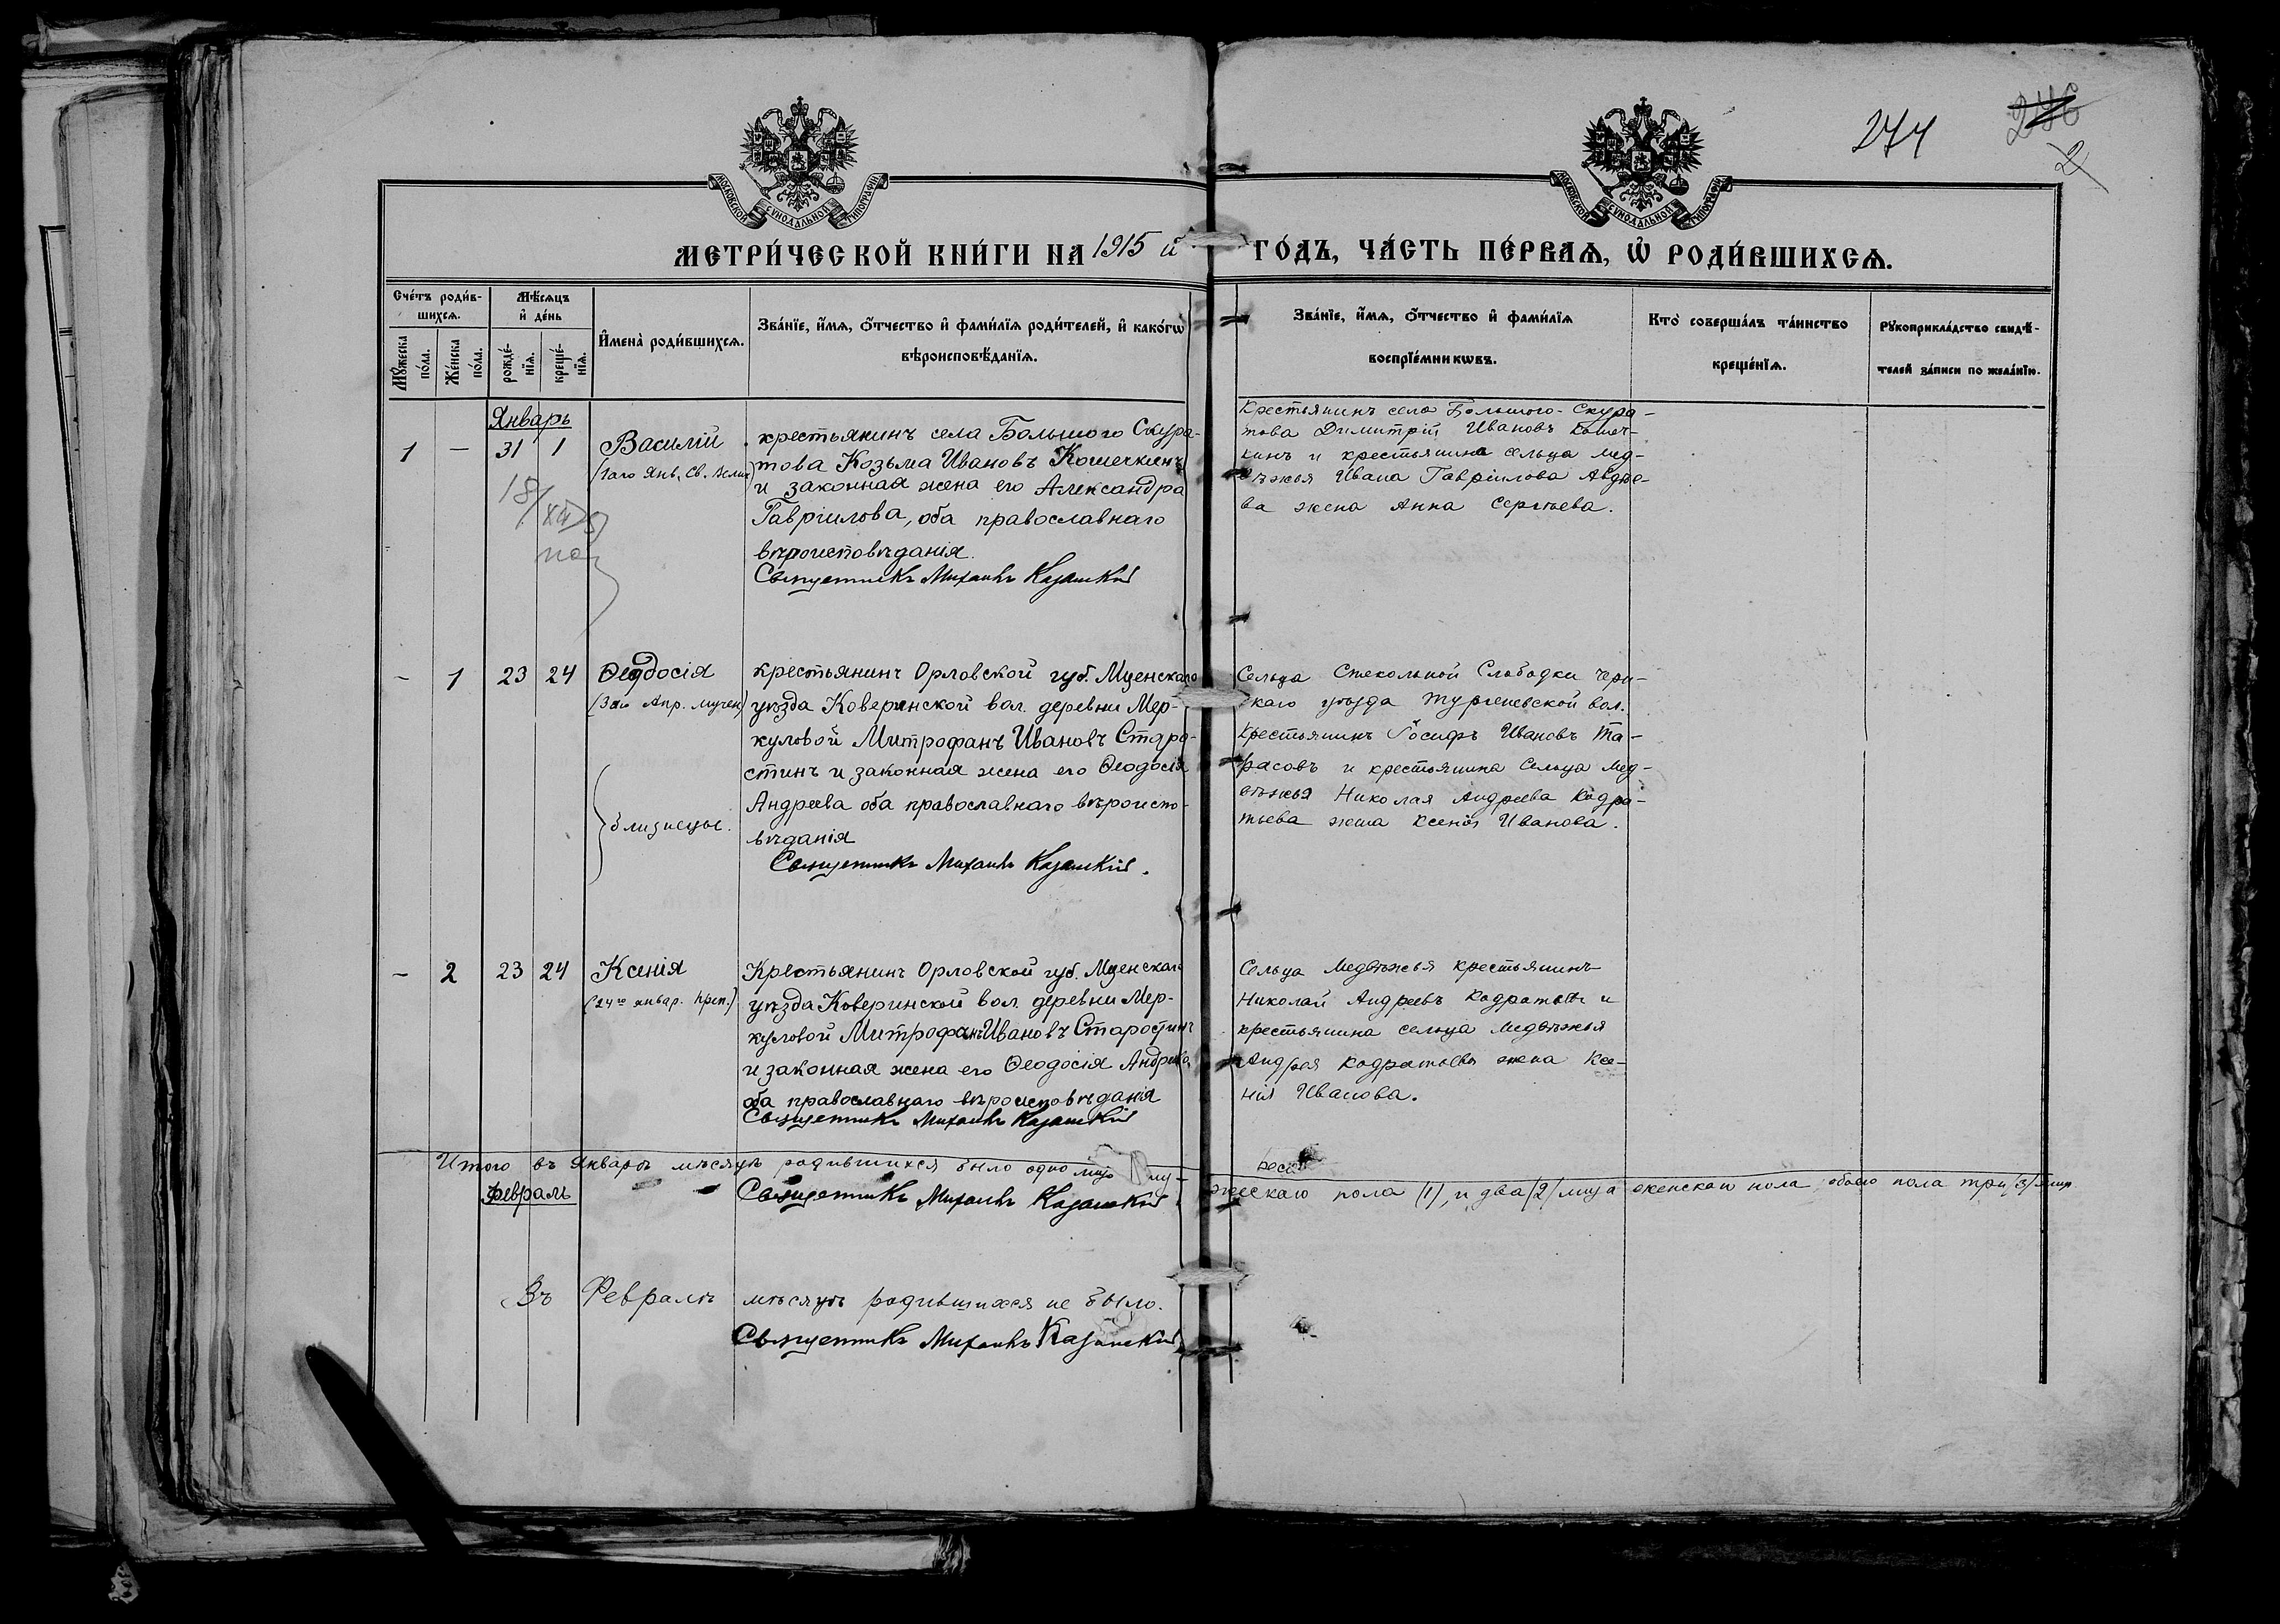 274
2
МОСКОВСКОЙ СѴНОДАЛЬНОЙ ТИПОГРАФІИ
МОСКОВСКОЙ СѴНОДАЛЬНОЙ ТИПОГРАФІИ
МЕТРИ́ЧЕСКОЙ КНИ́ГИ НА 1915 й ГО́ДЪ, ЧА́СТЬ ПЕ́РВАѦ, Ѽ РОДИ́ВШИХСѦ.
Сче́тъ роди́в-
шихсѧ.
Мꙋ́жеска по́ла.
Же́нска по́ла.
Мѣ́сѧцъ
и҆ де́нь
рожде́-
нїѧ.
креще́-
нїѧ.
И҆мена̀ роди́вшихсѧ.
Зва́нїе, и҆́мѧ, ѻ҆́тчество и҆ фами́лїѧ роди́телей, и҆ како́гѡ
вѣроисповѣ́данїѧ.
Зва́нїе, и҆́мѧ, ѻ҆́тчество и҆ фами́лїѧ
воспрїе́мникѡвъ.
Кто̀ соверша́лъ та́инство
креще́нїѧ.
Рꙋкоприкла́дство свидѣ́-
телей за́писи по жела́нїю.
Январь
1 — 31 1 Василій
(1аго Янв. Св. Велик)
крестьянинъ села Большого Скура-
това Козьма Ивановъ Кошечкинъ
и законная жена его Александра
Гавріилова, оба православнаго
вѣроисповѣданія.
Священникъ Михаилъ Казанскій
Крестьянинъ села Большого-Скура-
това Димитрій Ивановъ Кошеч-
кинъ и крестьянина сельца Мед-
вѣжья Ивана Гавріилова Авдѣе-
ва жена Анна Сергѣева.
— 1 23 24 Ѳеодосія
(3го Апр. мучен)
близнецы.
крестьянинъ Орловской губ. Мценскаго
уѣзда Коверинской вол. деревни Мер-
куловой Митрофанъ Ивановъ Старо-
стинъ и законная жена его Ѳеодосія
Андреева оба православнаго вѣроиспо-
вѣданія
Священникъ Михаилъ Казанскій.
Сельца Стекольной Слободки Черн-
скаго уѣзда Тургеневской вол.
крестьянинъ Іосифъ Ивановъ Та-
расовъ и крестьянина Сельца Мед-
вѣжья Николая Андреева Кодра-
тьева жена Ксенія Иванова.
— 2 23 24 Ксенія
(24го январ. преп.)
Крестьянинъ Орловской губ. Мценскаго
уѣзда Коверинской вол. деревни Мер-
куловой Митрофанъ Ивановъ Старостинъ
и законная жена его Ѳеодосія Андреева
оба православнаго вѣроисповѣданія
Священникъ Михаилъ Казанскій
Сельца Медвѣжья крестьянинъ
Николай Андреевъ Кодратьевъ и
крестьянина сельца Медвѣжья
Андрея Кодратьева жена Ксе-
нія Иванова.
Итого въ Январѣ мѣсяцѣ родившихся было одно лицо му-
жескаго пола (1), и два (2) лица женскаго пола, обоего пола три (3) лица
Февраль
Священникъ Михаилъ Казанскій.
Въ Февралѣ мѣсяцѣ родившихся не было.
Священникъ Михаилъ Казанскій